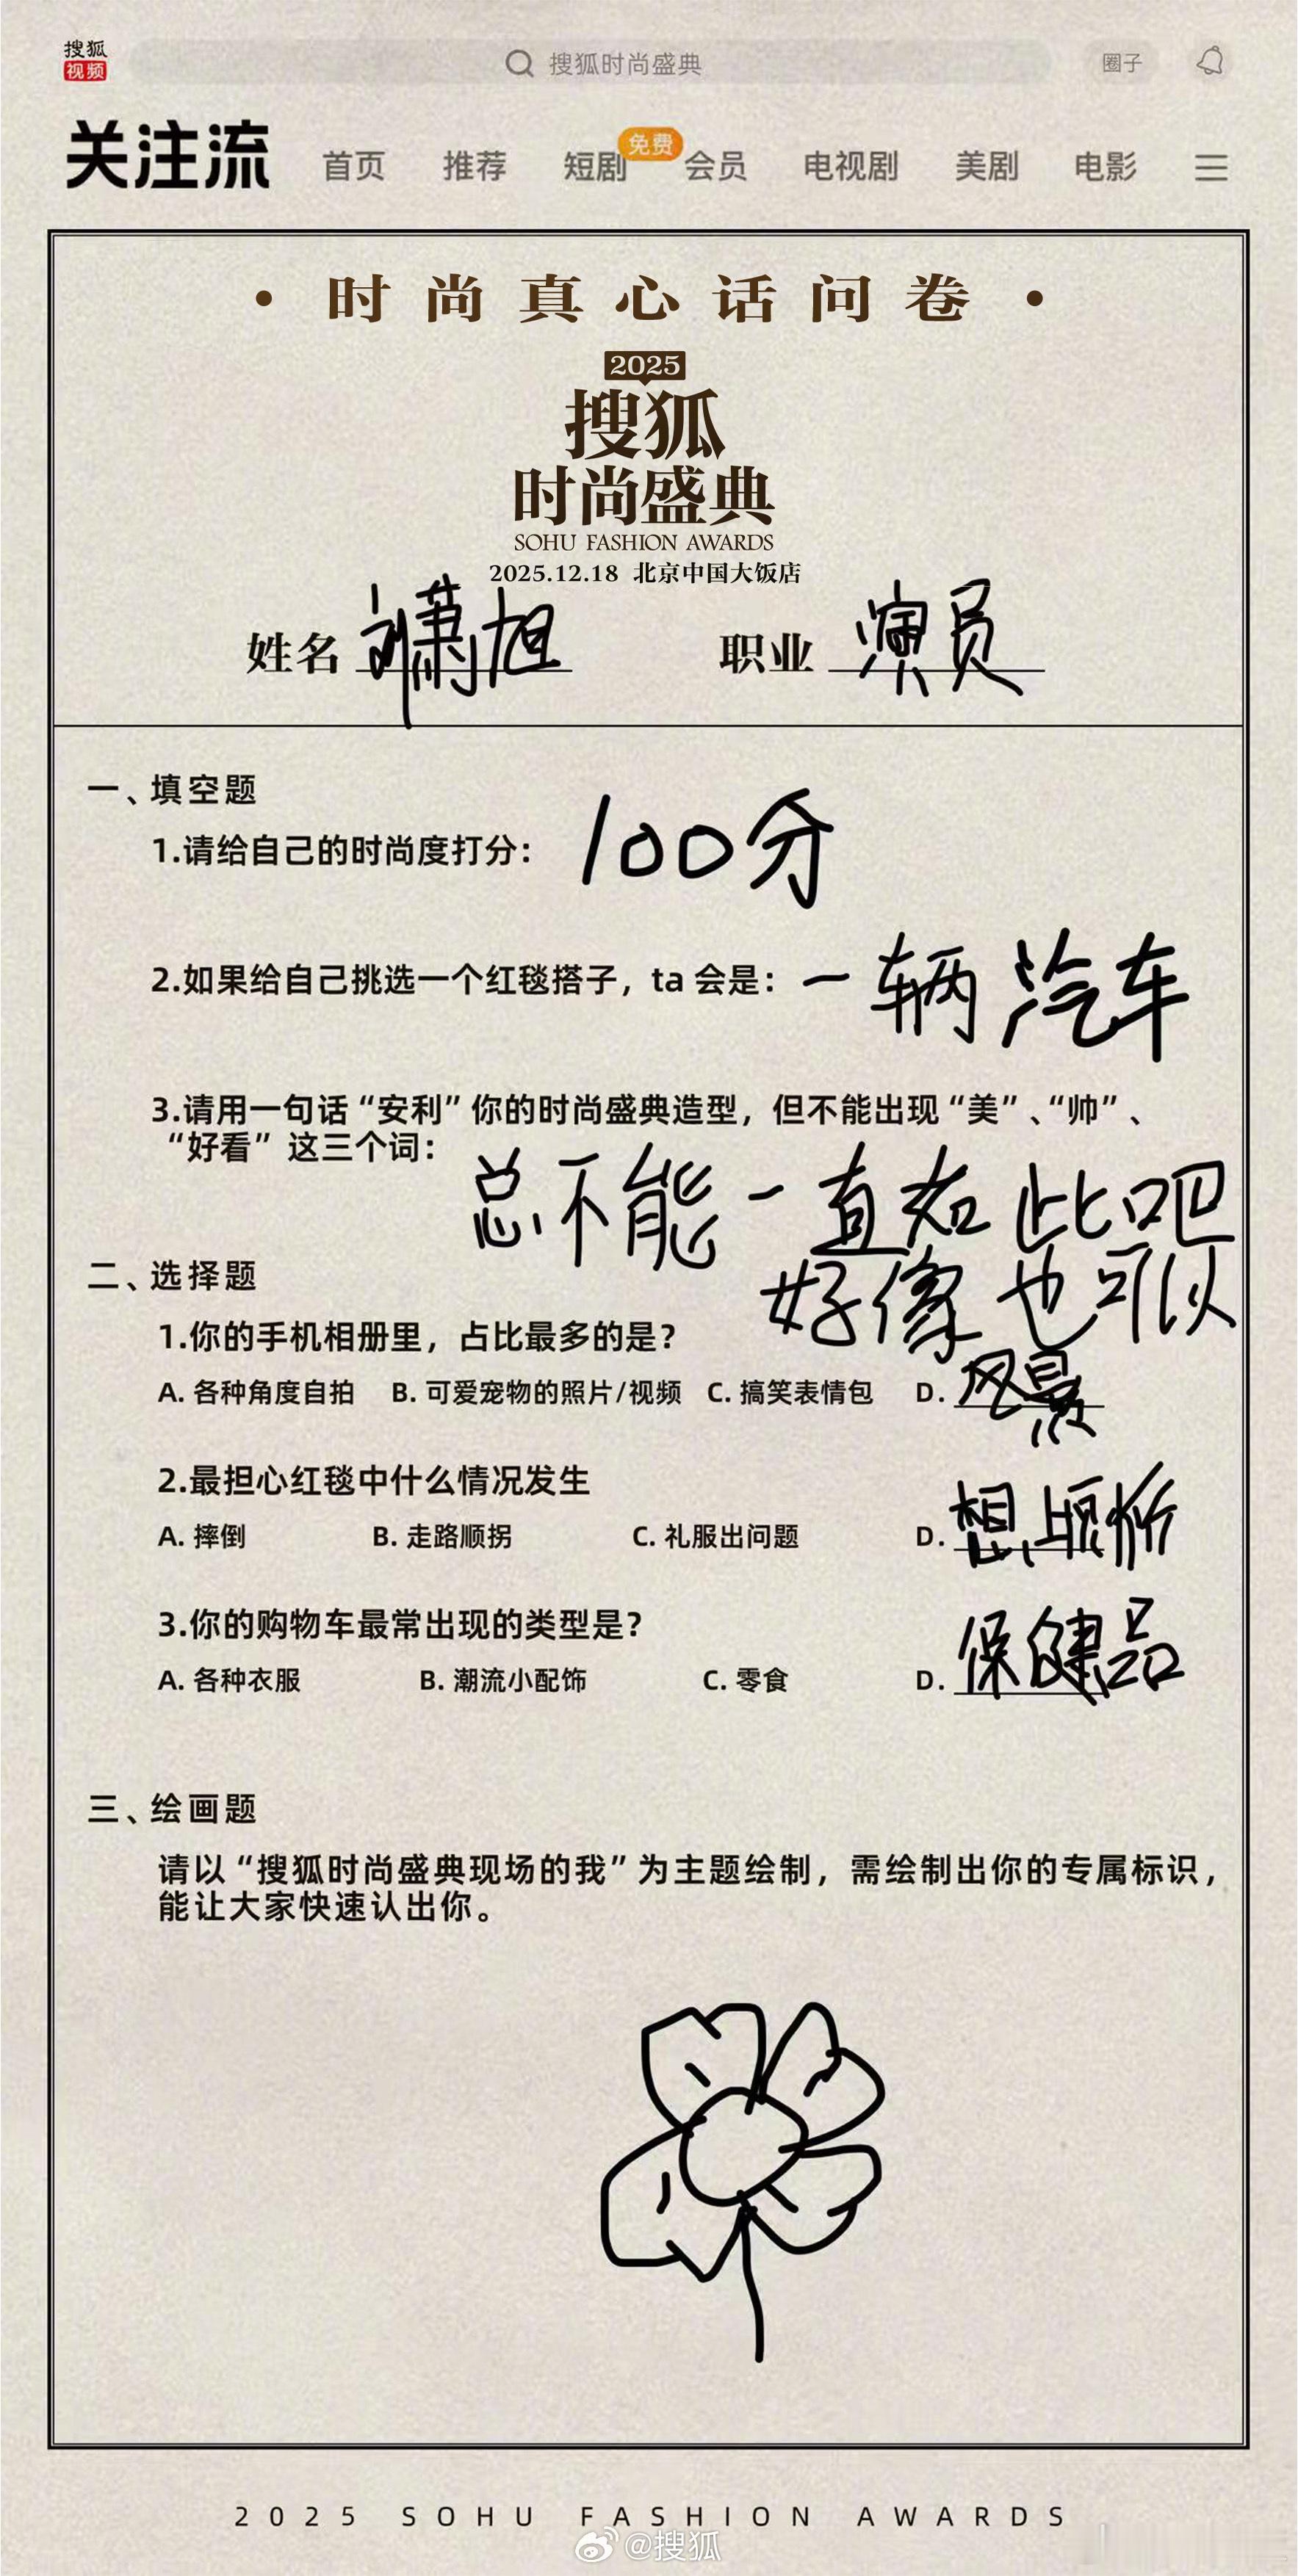 搜狐
视频
搜狐时尚盛典
圈子
关注流 首页 推荐 短剧 免费 会员 电视剧 美剧 电影
• 时尚真心话问卷 •
2025
搜狐
时尚盛典
SOHU FASHION AWARDS
2025.12.18 北京中国大饭店
姓名 刘萧旭 职业 演员
一、填空题
1.请给自己的时尚度打分： 100分
2.如果给自己挑选一个红毯搭子，ta 会是： 一辆汽车
3.请用一句话“安利”你的时尚盛典造型，但不能出现“美”、“帅”、
“好看” 这三个词：
总不能一直如此吧
好像也可以
二、选择题
1.你的手机相册里，占比最多的是？
A. 各种角度自拍 B. 可爱宠物的照片/视频 C. 搞笑表情包 D. 风景
2.最担心红毯中什么情况发生
A. 摔倒 B. 走路顺拐 C. 礼服出问题 D. 想上厕所
3.你的购物车最常出现的类型是？
A. 各种衣服 B. 潮流小配饰 C. 零食 D. 保健品
三、绘画题
请以“搜狐时尚盛典现场的我”为主题绘制，需绘制出你的专属标识，
能让大家快速认出你。
2025 SOHU FASHION AWARDS
@搜狐